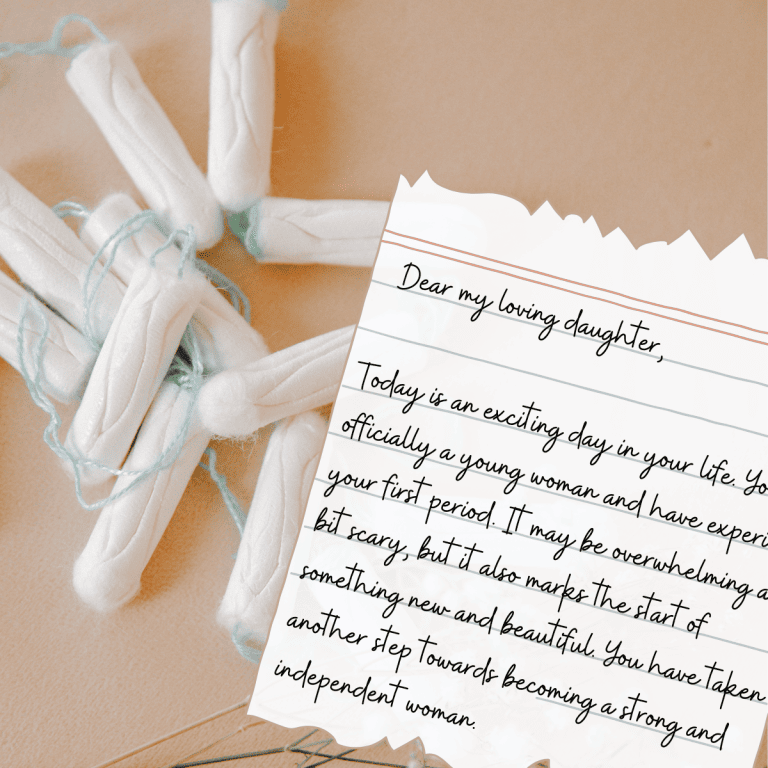 Dear my loving daughter,
Today is an exciting day in your life. Yo
officially a young woman and have experi
your first period. It may be overwhelming a
bit scary, but it also marks the start of
something new and beautiful. You have taken
another step towards becoming a strong and
independent woman.